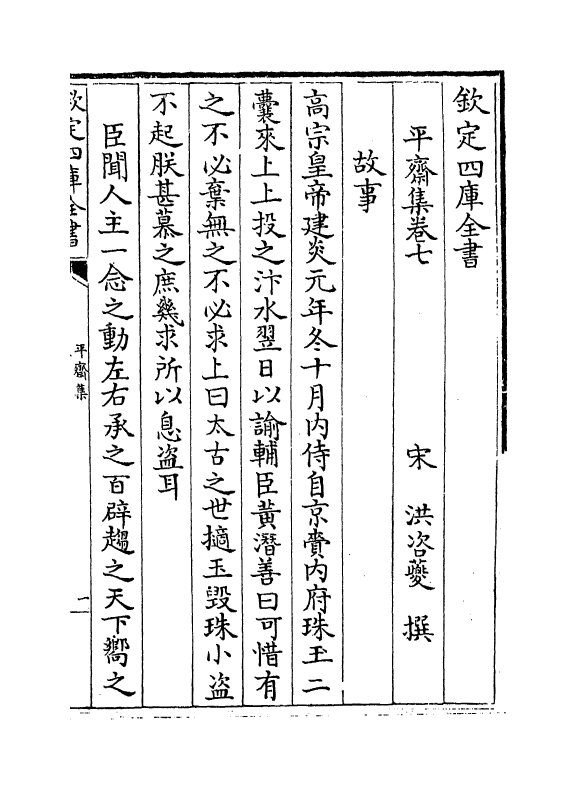 欽定四庫全書
平齋集卷七
宋 洪咨夔 撰
故事
高宗皇帝建炎元年冬十月内侍自京賫内府珠玉二
囊來上上投之汴水翌日以諭輔臣黃潛善曰可惜有
之不必棄無之不必求上曰太古之世擿玉毀珠小盜
不起朕甚慕之庶幾求所以息盜耳
臣聞人主一念之動左右承之百辟趨之天下嚮之
欽定四庫全書
平齋集
一